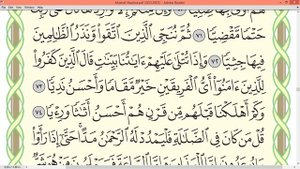 (SECURED) - Adobe Reader
حَتْمًا مَّقْضِيًّا ٧١ ثُمَّ نُنَجِّى ٱلَّذِينَ ٱتَّقَوا۟ وَّنَذَرُ ٱلظَّٰلِمِينَ
فِيهَا جِثِيًّا ٧٢ وَإِذَا تُتْلَىٰ عَلَيْهِمْ ءَايَٰتُنَا بَيِّنَٰتٍ قَالَ ٱلَّذِينَ كَفَرُوا۟
لِلَّذِينَ ءَامَنُوٓا۟ أَىُّ ٱلْفَرِيقَيْنِ خَيْرٌ مَّقَامًا وَأَحْسَنُ نَدِيًّا ٧٣
وَكَمْ أَهْلَكْنَا قَبْلَهُم مِّن قَرْنٍ هُمْ أَحْسَنُ أَثَٰثًا وَرِءْيًا ٧٤
قُلْ مَن كَانَ فِى ٱلضَّلَٰلَةِ فَلْيَمْدُدْ لَهُ ٱلرَّحْمَٰنُ مَدًّا حَتَّىٰٓ إِذَا رَأَوْا۟